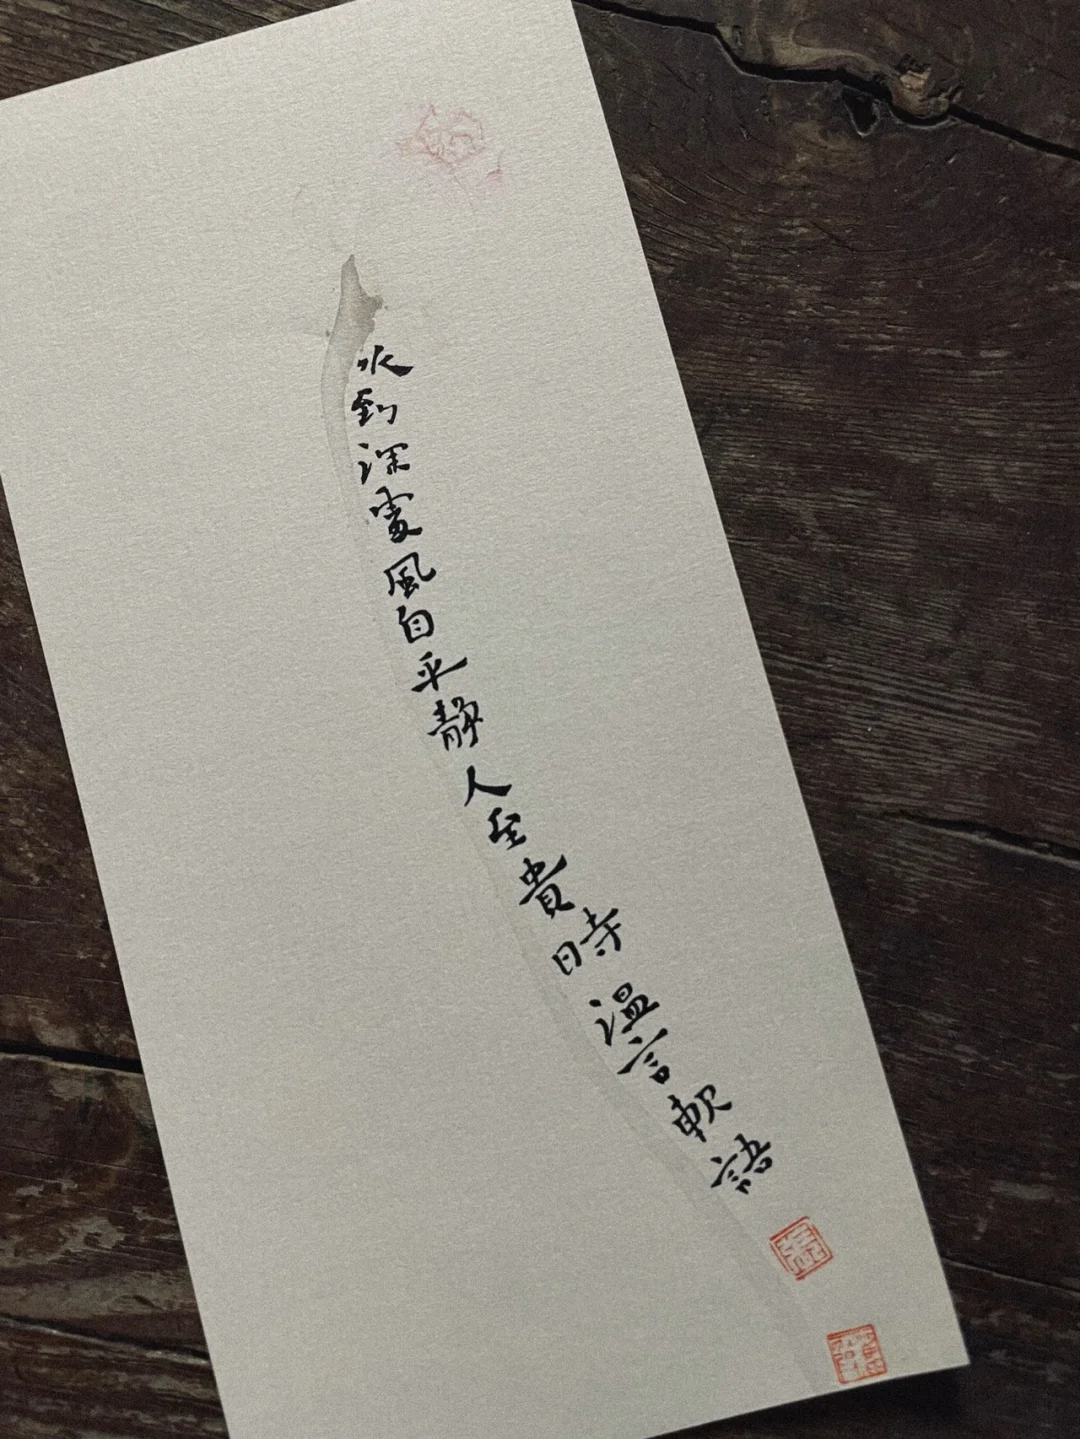 水到深處風自平靜人至貴時溫言軟語